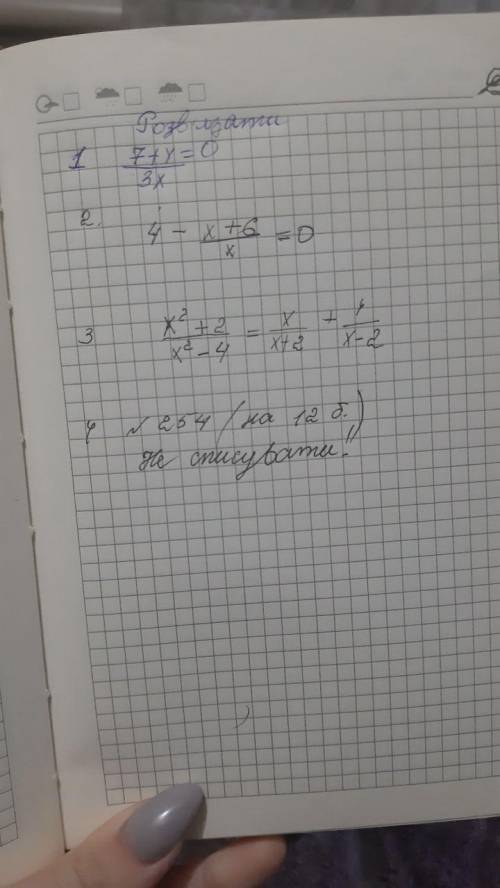 Розв'язати
1 (7+x)/3x = 0
2. 4 - (x+6)/x = 0
3 (x²+2)/(x²-4) = x/(x+2) + 1/(x-2)
4 №254 (на 12 б.)
Не списувати!!